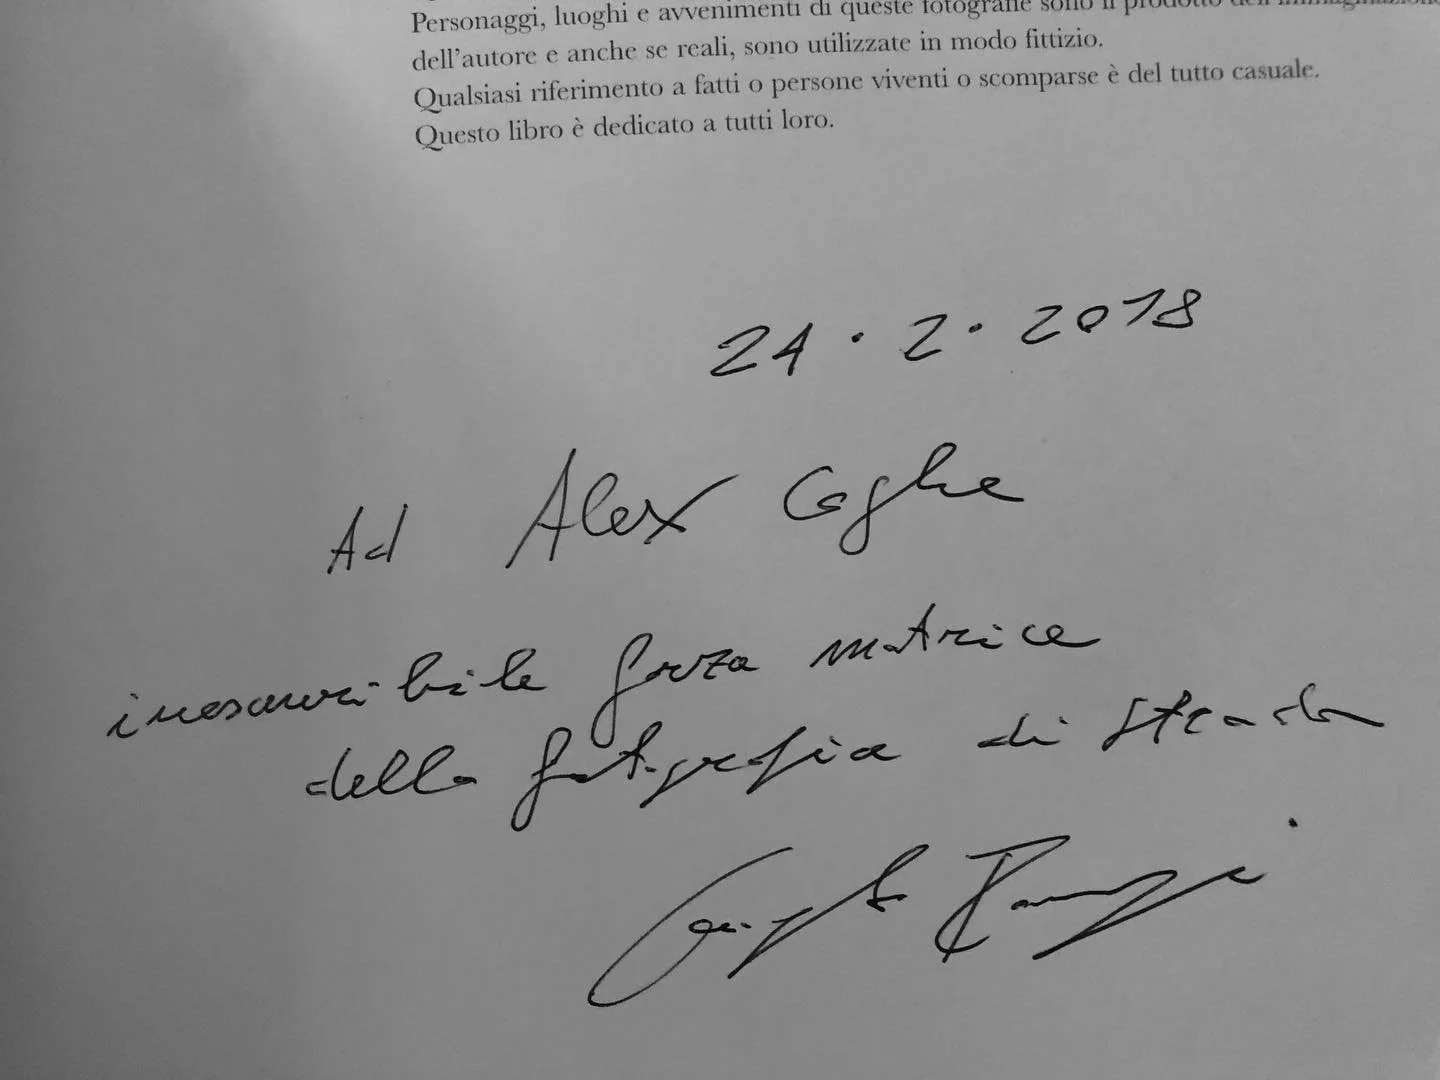 Personaggi, luoghi e avvenimenti di queste fotografie sono il prodotto dell'immaginazione
dell'autore e anche se reali, sono utilizzate in modo fittizio.
Qualsiasi riferimento a fatti o persone viventi o scomparse è del tutto casuale.
Questo libro è dedicato a tutti loro.
24 . 2 . 2018
Ad Alex Coghe
inesauribile forza motrice
della fotografia di strada